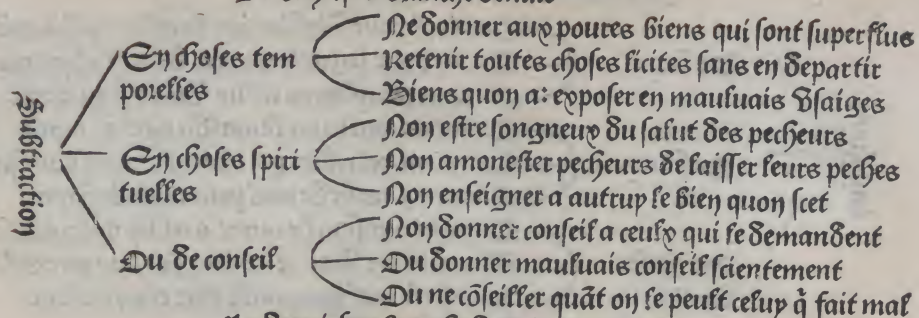 Subtraction
En choses tem
porelles
Ne donner aux poures biens qui sont superflus
Retenir toutes choses licites sans en departir
Biens quon a: exposer en maulvais vsaiges
En choses spiri
tuelles
Non estre songneux du salut des pecheurs
Non amonester pecheurs de laisser leurs peches
Non enseigner a autruy le bien quon scet
Ou de conseil
Non donner conseil a ceulx qui le demandent
Ou donner mauluais conseil scientement
Ou ne cõseiller quãt on le peult celuy q̃ fait mal